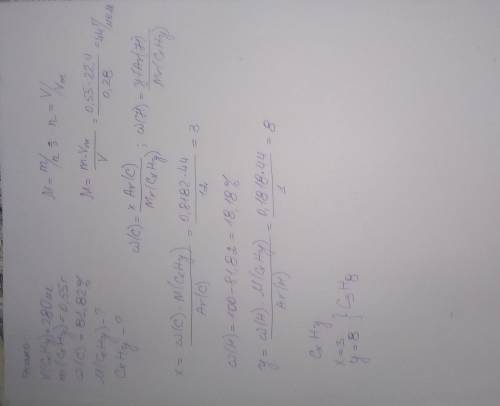 Дано:
V(CxHy)=280мл
m(CxHy)=0,55г
ω(C)=81,82%
M(CxHy)-?
CxHy-?
M=m/n; n=V/Vm
M=m·Vm/V=0,55·22,4/0,28=44г/моль
ω(C)=x·Ar(C)/Mr(CxHy); ω(H)=y·Ar(H)/Mr(CxHy)
x=ω(C)·M(CxHy)/Ar(C)=0,8182·44/12=3
ω(H)=100-81,82=18,18%
y=ω(H)·M(CxHy)/Ar(H)=0,1818·44/1=8
CxHy
x=3
y=8 } C3H8